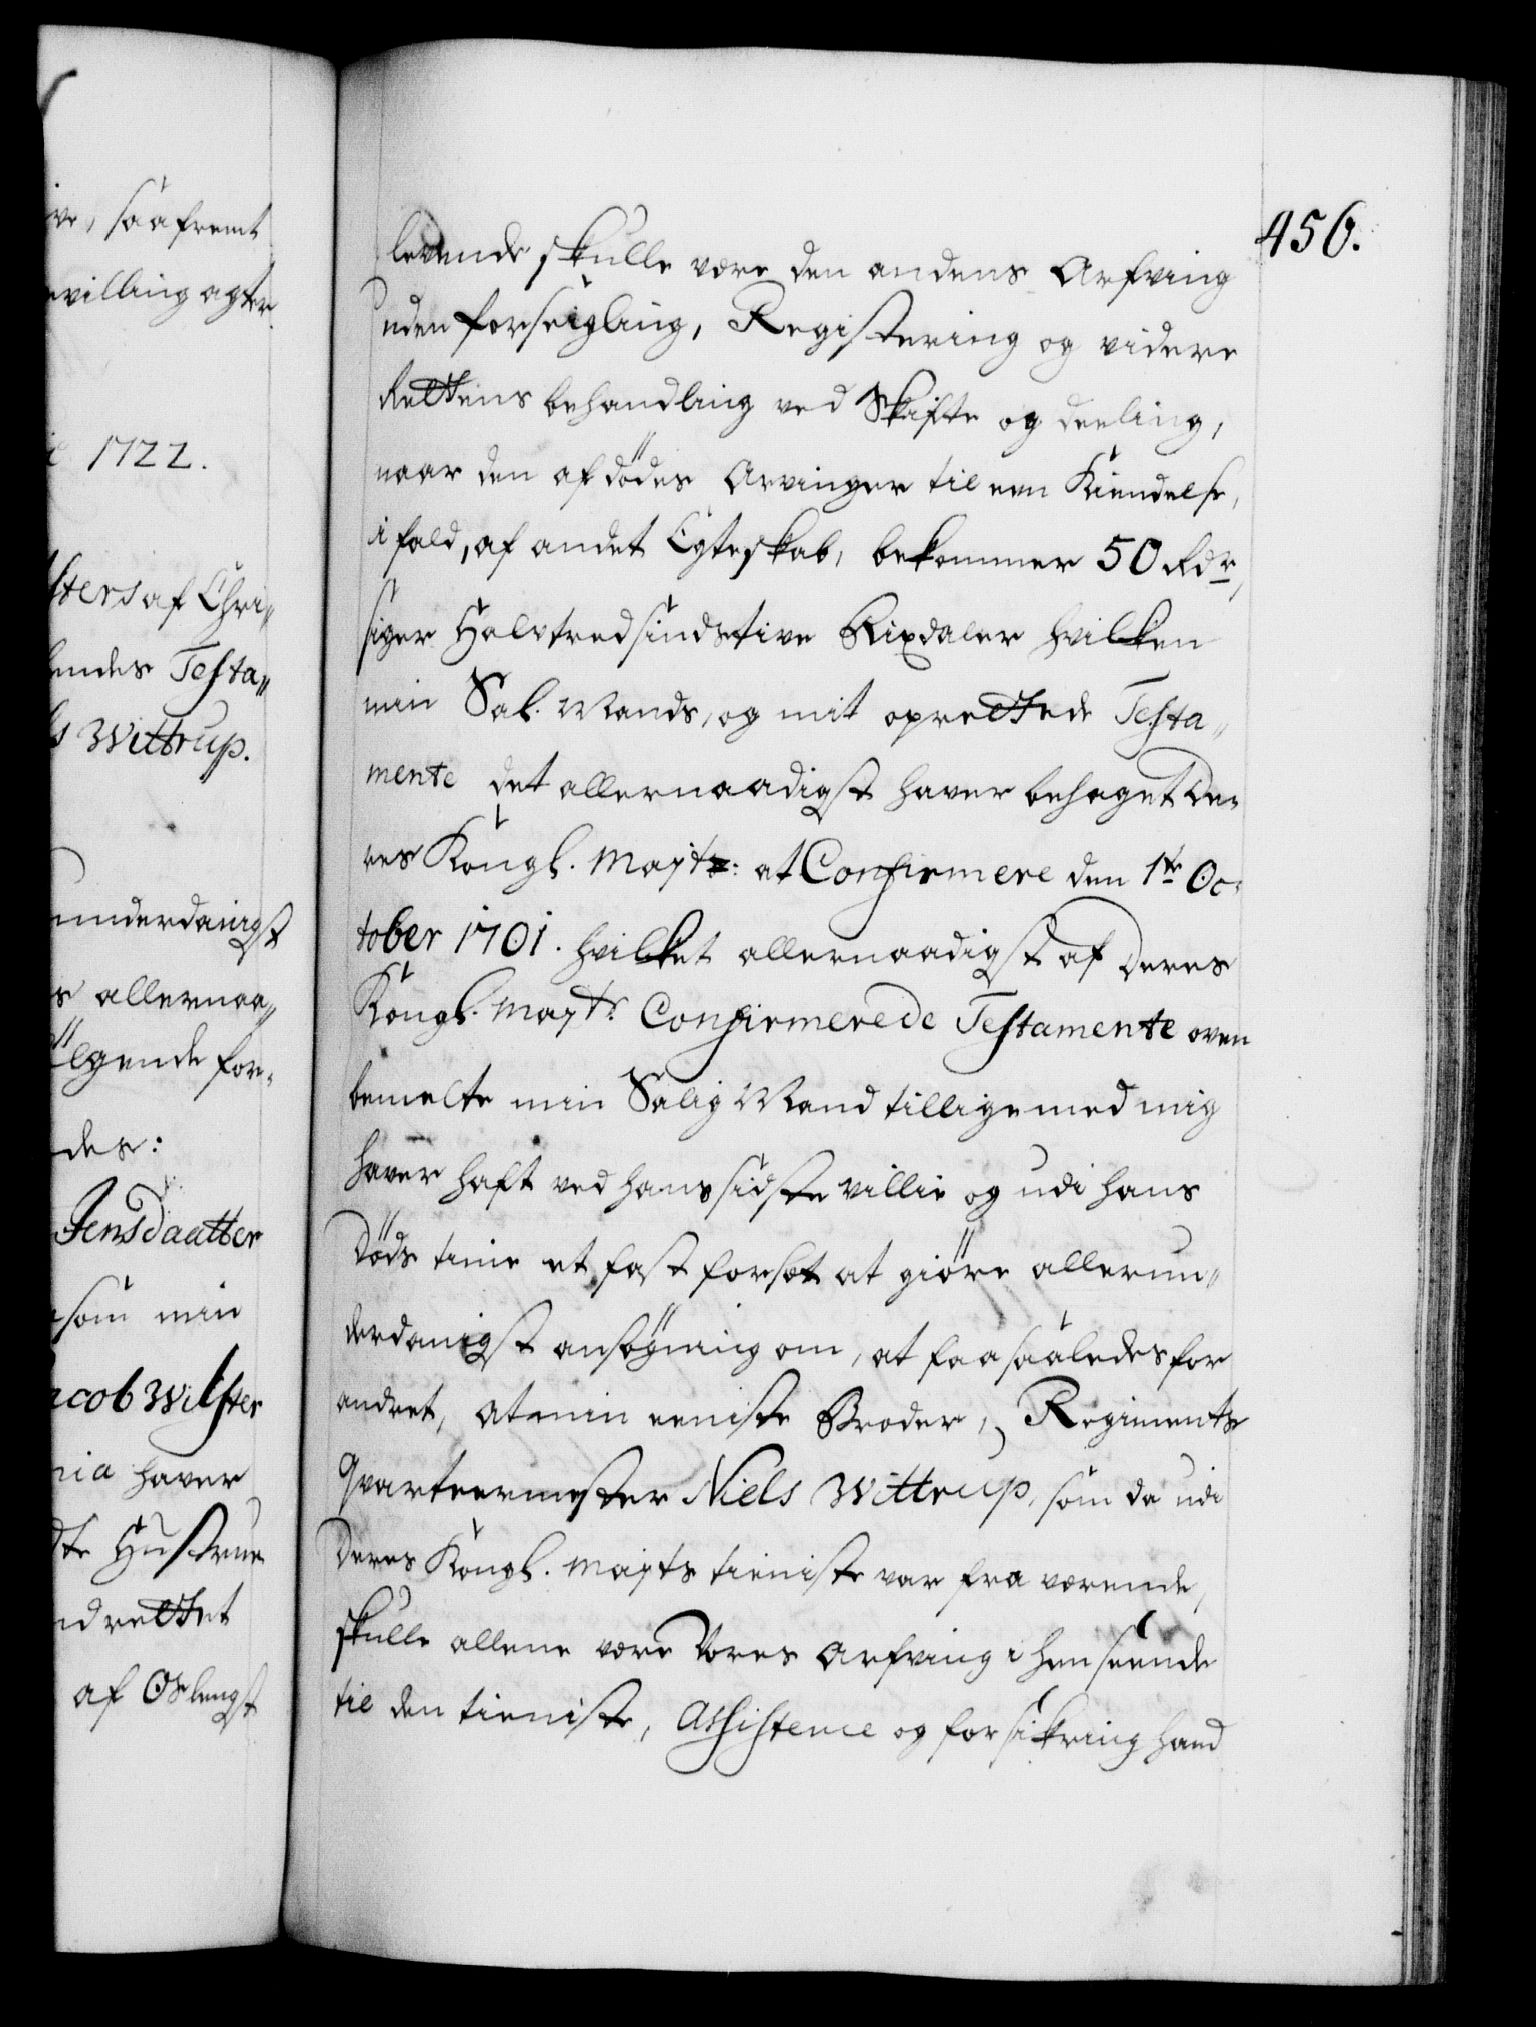 ve, saafremt
evilling agter
1722.
sters af Chri„
hendes Testa„
Wittrup.
underdanigst
s allernaa„
ølgende for„
des:
Jensdaatter
som min
acob Wilster
nia haver
dte Hustrue
ndrettet
af Oslengst
456.
levende skulle være den andens Arfving
uden forseigling, Registering og videre
Rettens behandling ved Skifte og deeling,
naar den afdødes Arvinger til een Kiendelse,
i fald, af andet Egteskab, bekommer 50 Rdr,
siger Halvtredsindstive Rixdaler hvilken
min Sal. Mands, og mit oprettede Testa„
mente det allernaadigst haver behaget De„
res Kongl. Mayts: at Confirmere den 1te Oc„
tober 1701. hvilket allernaadigst af Deres
Kongl. Mayts: Confirmerede Testamente oven
bemelte min Salig Mand tilligemed mig
haver haft ved hans sidste villie og udi hans
Døds time et fast forsæt at giøre allerun„
derdanigst ansøgning om, at faa saaledes for
andret, at min eeniste Broder, Regiments
Qvarteermester Niels Wittrup, som da udi
Deres Kongl. Mayts tieniste var fra værende,
skulle allene være Vores Arfving i henseende
til den tieniste, Assistence og forsikring hand